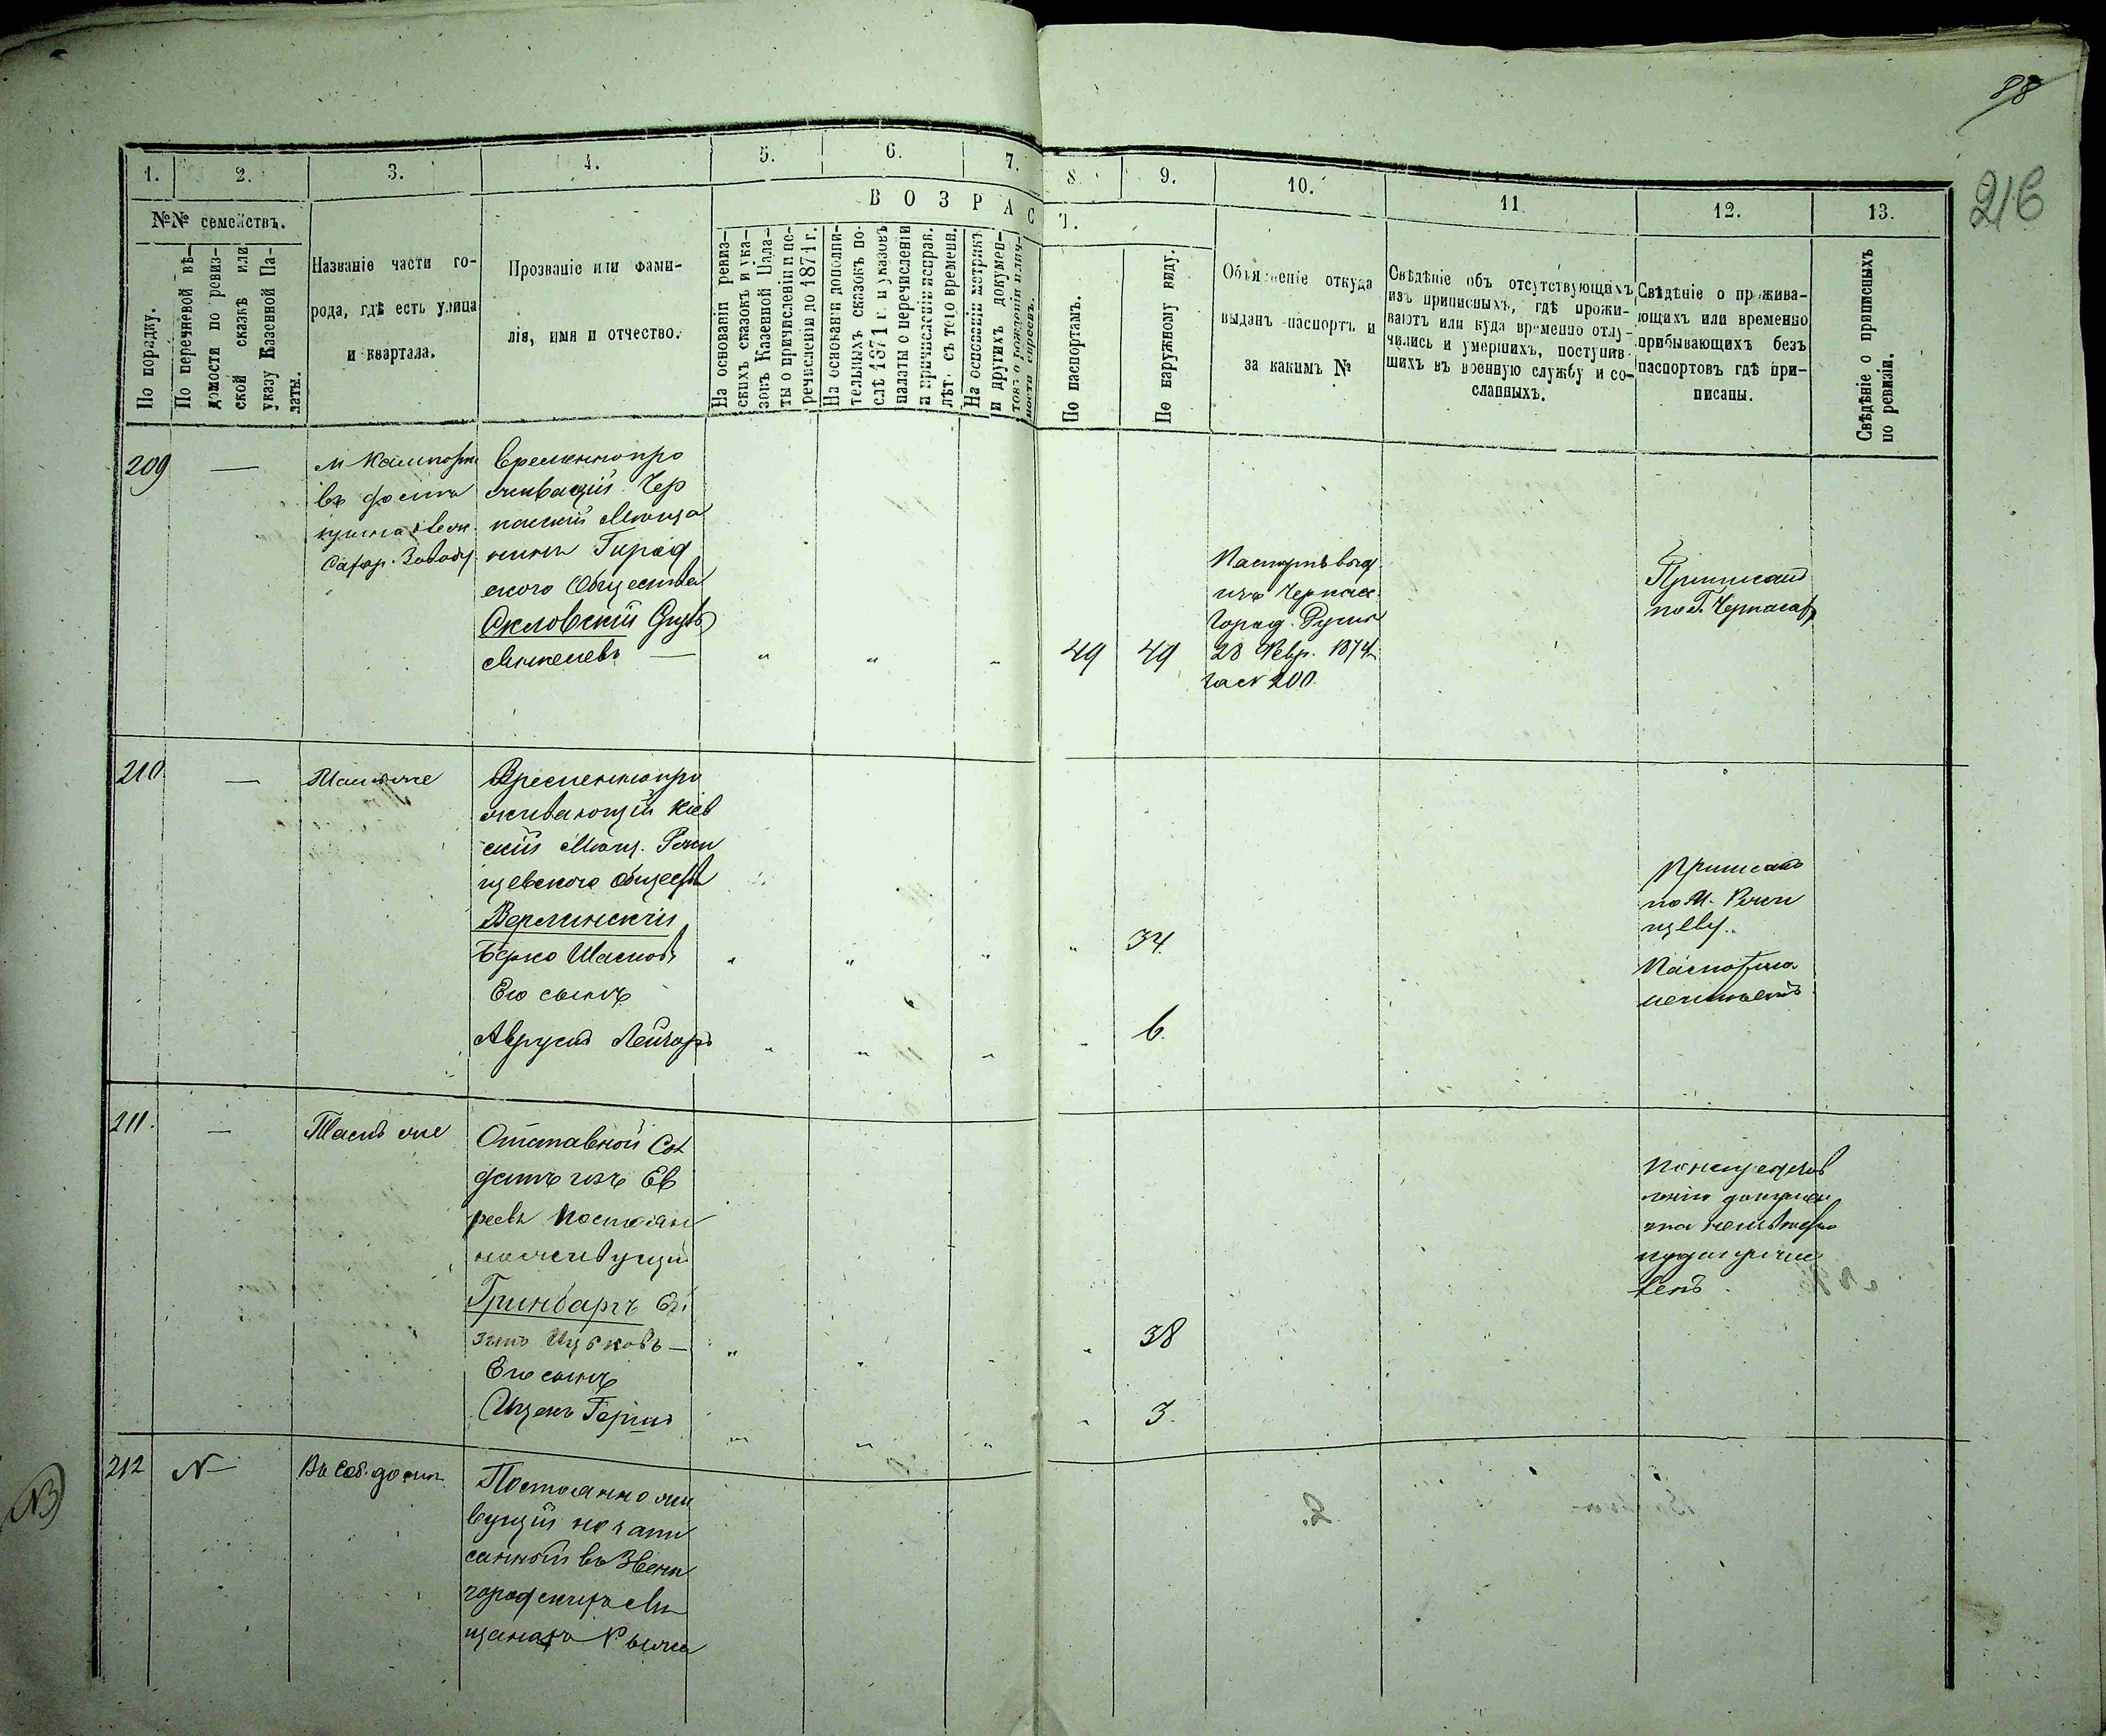 88
216
1. 2. 3. 4. 5. 6. 7. 8. 9. 10. 11. 12. 13.
В О З Р А С Т.
№№ семействъ.
По порядку.
По перечневой вѣ-
домости по ревиз-
ской сказкѣ или
указу Казенной Па-
латы.
Названіе части го-
рода, гдѣ есть улица
и квартала.
Прозваніе или фами-
лія, имя и отчество.
На основаніи ревиз-
скихъ сказокъ и ука-
зовъ Казенной Пала-
ты о причисленіи и пе-
речисленіи до 1871 г.
На основаніи дополни-
тельныхъ сказокъ по-
слѣ 1871 г. и указовъ
палаты о перечисленіи
и причисленіи исправ.
лѣт. съ того времени.
На основаніи метрикъ
и другихъ докумен-
товъ о рожденіи и лич-
ности евреевъ.
По паспортамъ.
По наружному виду.
Объясненіе откуда
выданъ паспортъ и
за какимъ №
Свѣдѣніе объ отсутствующихъ
изъ приписныхъ, гдѣ прожи-
ваютъ или куда временно отлу-
чились и умершихъ, поступив-
шихъ въ военную службу и со-
сланныхъ.
Свѣдѣніе о прожива-
ющихъ или временно
прибывающихъ безъ
паспортовъ гдѣ при-
писаны.
Свѣдѣніе о приписныхъ
по ревизіи.
209 —
въ домѣ
Сахар. Заводу
Временнопро
живающій Чер
каскій Мѣща
нинъ Город
ского Общества
Окловскій
— " " " 49 49
Паспортъ выд
изъ Черкас.
Город. Думы
28 Февр. 1874
за № 200
Приписанъ
по г. Черкасах
210 — Тамъ же
Временнопро
живающій Кіев
скій Мѣщ. Ржи
щевского Общества
Верлинскій
Берко " " " " 34.
Его сынъ
Аврумъ Лейзоръ " " " " 6.
Приписанъ
по М. Ржи
щеву.
Паспорта не
211. — Тамъ же
Отставной Сол
датъ изъ Ев
реевъ Постоян
ноживущій
Гринбаргъ
Ицковъ — " " " " 38
Его сынъ
Ицекъ Гершъ " " " " 3.
212 N— Въ соб. домѣ
Постоянно жи
вущій
санной въ Звени
городскихъ Мѣ
щанахъ
NB